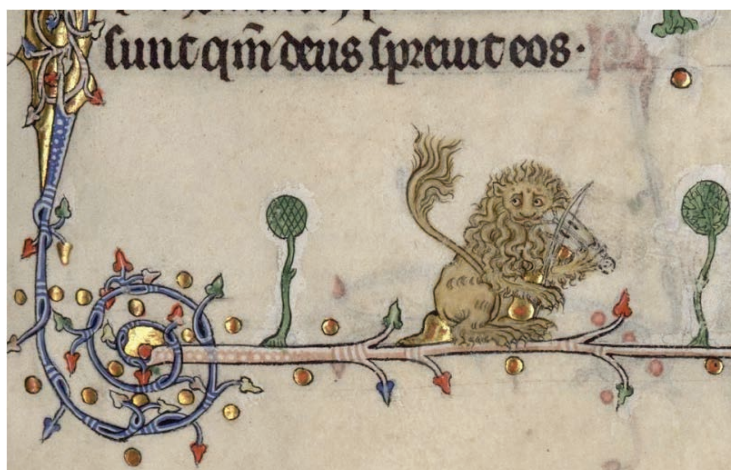 sunt qm̄ deus spreuit eos·